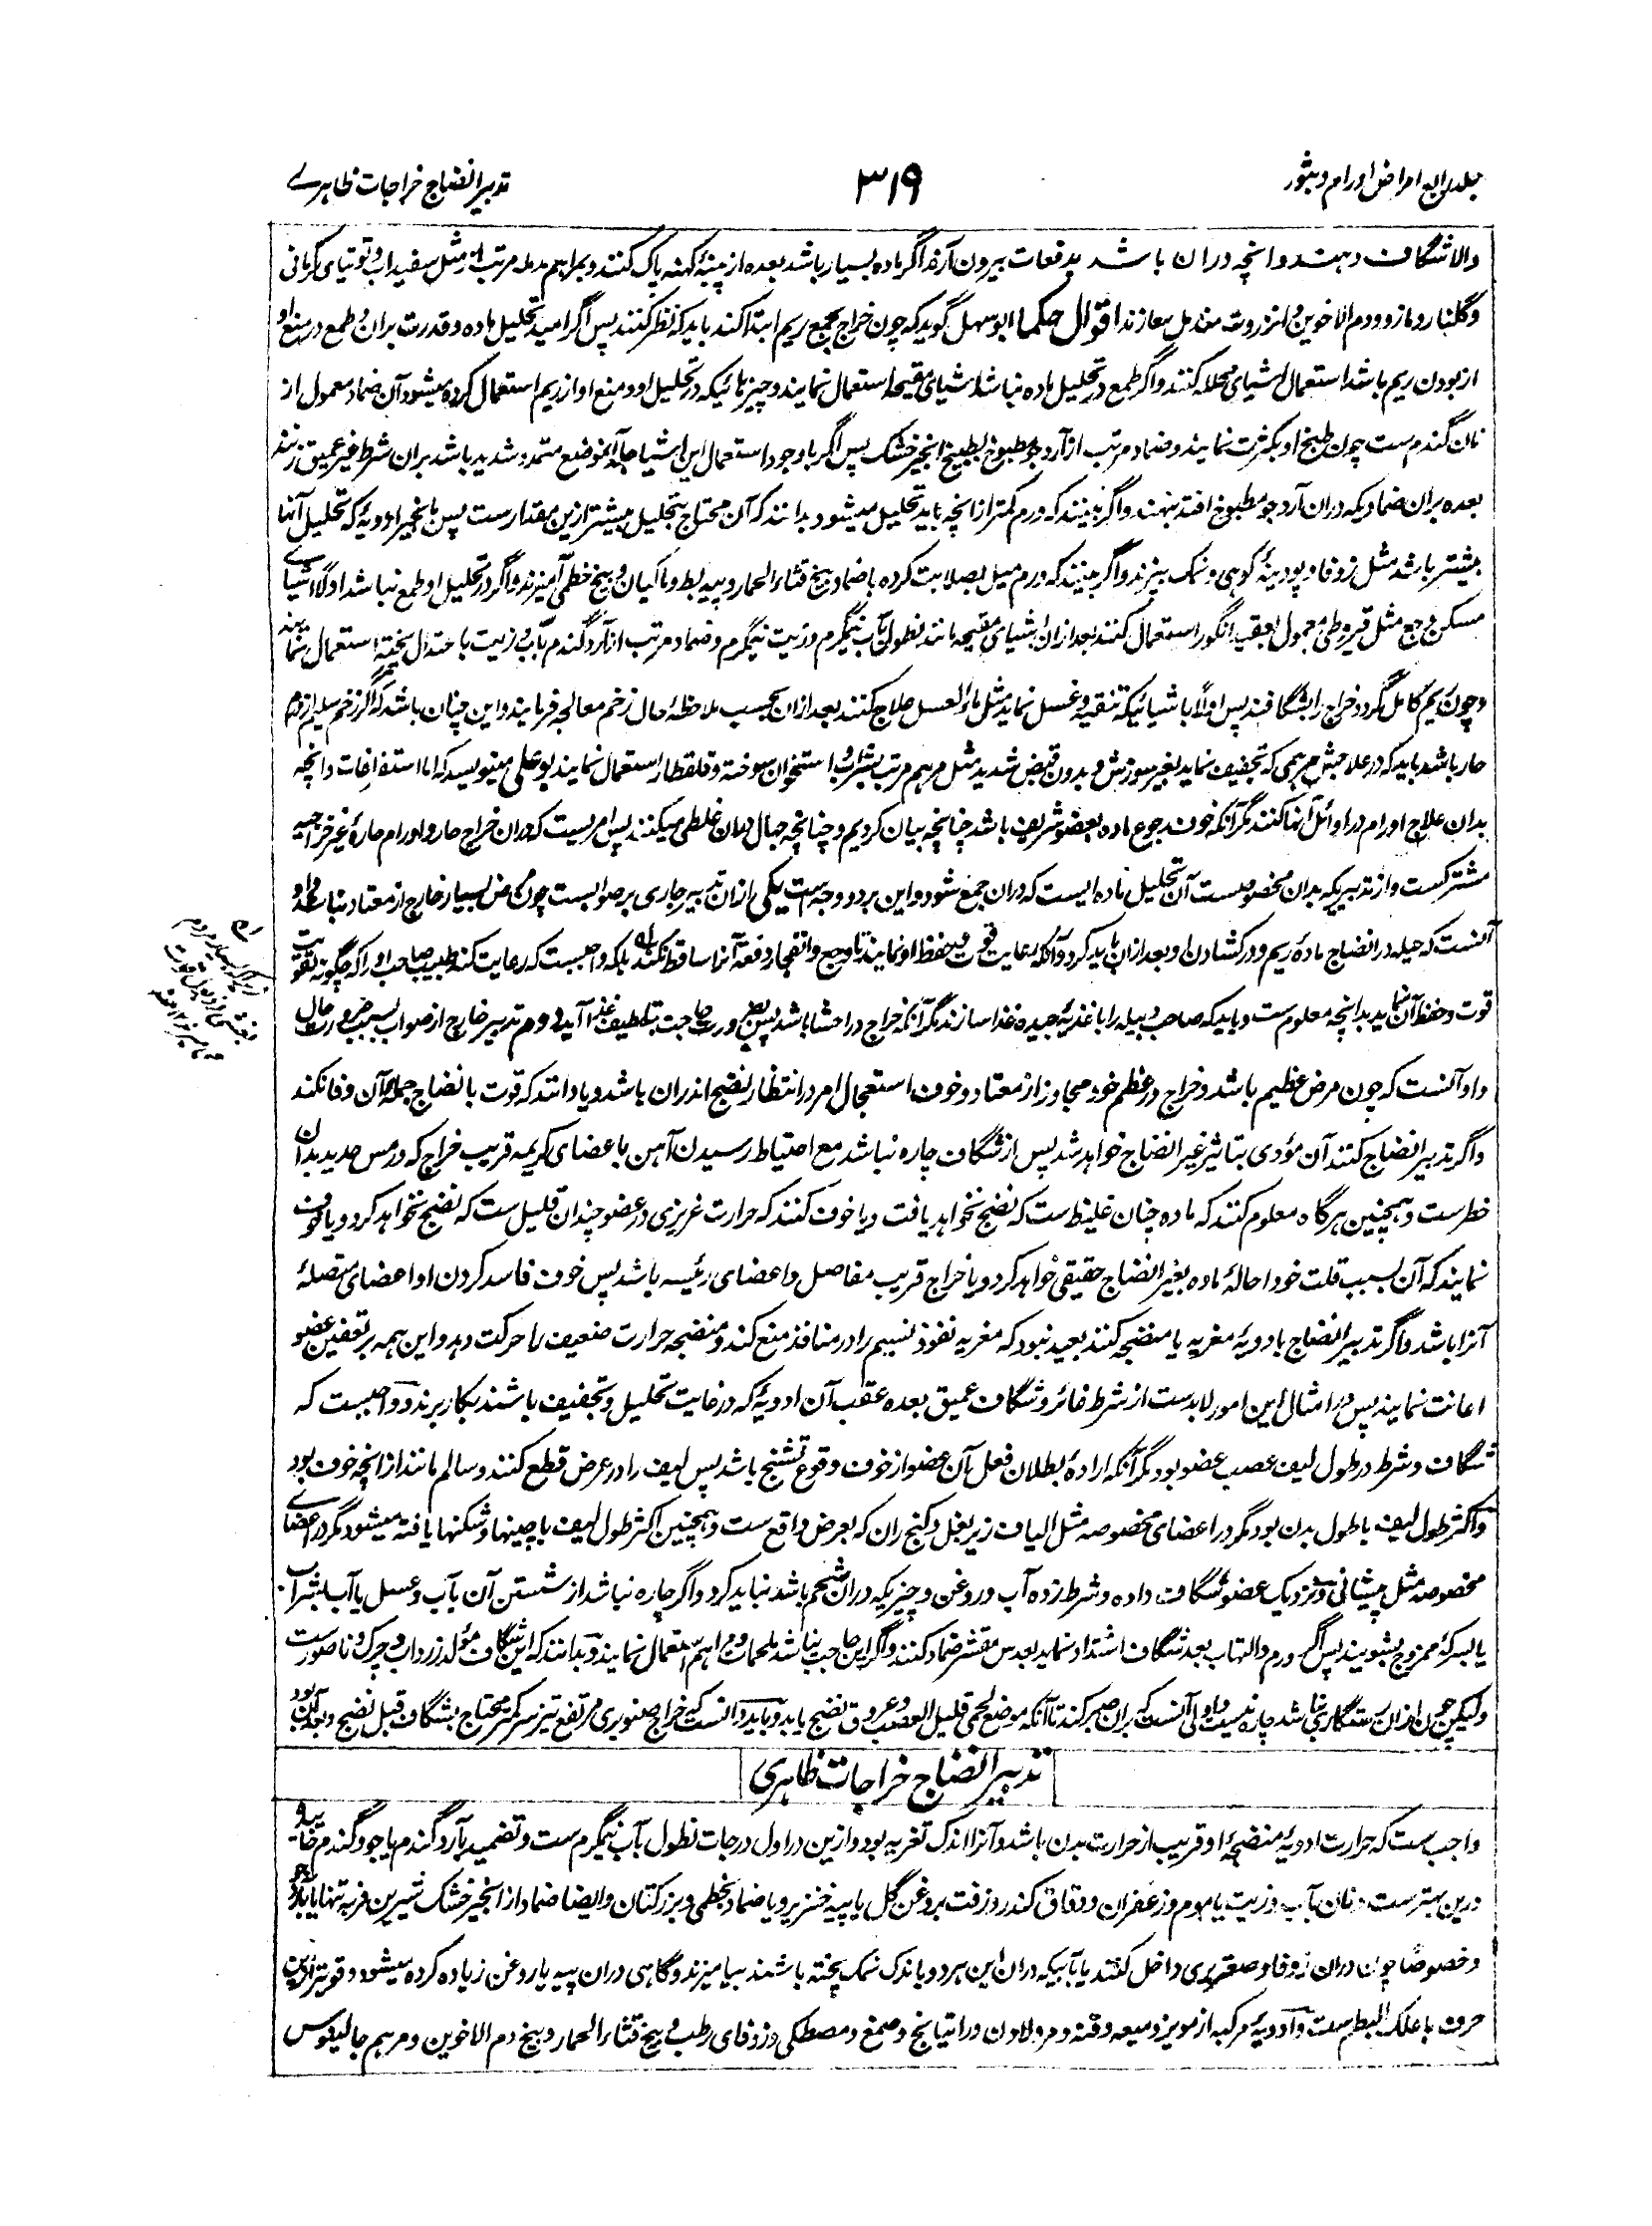 جلد رابع امراض اورام و بثور
۳۱۹
تدبیر انضاج خراجات ظاہرے
والا شگاف دہند و انچہ دران باشد بدفعات بیرون آرند اگر مادہ بسیار باشد بعدہ از پنبۂ کہنہ پاک کنند و بمراہم مدملہ مرتب از مثل سفیداب و توتیای کرمانی
و گلنار و مازو و دم الاخوین و انزروت مندمل سازند اقوال حکما ابو سہل گوید کہ چون خراج بجمع ریم ابتدا کند باید کہ نظر کنند پس اگر امید تحلیل مادہ و قدرت بران و طمع در منع او
از بودن ریم باشد استعمال اشیای محللہ کنند و اگر طمع در تحلیل مادہ نباشد اشیای مقیحہ استعمال نمایند و چیزہائیکہ در تحلیل او و منع او از ریم استعمال کردہ میشود آن ضماد معمول از
نان گندم ست چون طبخ او بکثرت نمایند و ضماد مرتب از آرد جو مطبوخ بطبیخ انجیر خشک پس اگر باوجود استعمال این اشیا جلد آنموضع متمدد شدید باشد بران شرط غیر عمیق زنند
بعدہ بران ضمادیکہ دران آرد جو مطبوخ افتد بنہند و اگر بینند کہ ورم کمتر از انچہ باید تحلیل میشود بدانند کہ آن محتاج بتحلیل بیشتر ازین مقدار ست پس بانجیر ادویۂ کہ تحلیل آنہا
بیشتر باشد مثل زوفا و پودینۂ کوہی و نمک بپزند و اگر بینند کہ ورم میل بصلابت کردہ با ضماد بیخ قثاء الحمار و پیہ بط و ماکیان و بیخ خطمی آمیزند و اگر در تحلیل او طمع نباشد اولاً اشیاے
مسکن وجع مثل قیروطی معمول بعقید انگور استعمال کنند بعد ازان اشیای مقیحہ مانند نطول بآب نیگرم و زیت نیگرم و ضماد مرتب از آرد گندم بآب و زیت باعتدال پختہ استعمال نمایند
و چون ریم کامل گردد خراج را بشگافند پس اولاً باشیائیکہ تنقیہ و غسل نماید مثل ماء العسل علاج کنند بعد ازان بحسب ملاحظۂ حال زخم معالجہ فرمایند و این چنان باشد کہ اگر زخم سلیم از ورم
حار باشد باید کہ در علاجش مرہمی کہ تجفیف نماید بغیر سوزش و بدون قبض شدید مثل مرہم مرتب بشراب و استخوان سوختہ و قلقطار استعمال نمایند بو علی مینویسد کہ اما استفراغات و انچہ
بدان علاج اورام در اوائل آنہا کنند مگر آنکہ خوف رجوع مادہ بعضو شریف باشد چنانچہ بیان کردیم و چنانچہ جہال دران غلطی میکنند پس امریست کہ دران خراج حار و اورام حارۂ غیر خراجیہ
مشترکست و از تدبیریکہ بدان مخصوصست آن تحلیل مادہ ایست کہ دران جمع شود و این بر دو وجہ است یکی ازان تدبیر جاری بر صوابست چون مرض بسیار خارج از معتاد نباشد و او
آنست کہ حیلہ در انضاج مادۂ ریم و در کشادن او بعد ازان باید کرد و آنکہ رعایت قوت و حفظ او نمایند تا وجع و انفجار دفعۃً آنرا ساقط نکند بلکہ واجبست کہ رعایت کند طبیب صاحب او را کہ چگونہ تقویت
قوت و حفظ آن نماید بدانچہ معلوم ست و باید کہ صاحب دبیلہ را باغذیۂ جیدہ غذا سازند مگر آنکہ خراج در احشا باشد پس بضرورت حاجت بتلطیف غذا آید دوم تدبیر خارج از صواب بسبب ضرورت حال
و او آنست کہ چون مرض عظیم باشد و خراج در عظم خود مجاوز از معتاد و خوف استعجال امر در انتظار نضج اندران باشد و یا دانند کہ قوت بانضاج جملۂ آن وفا نکند
و اگر تدبیر انضاج کنند آن مؤدی بتاثیر غیر انضاج خواہد شد پس از شگاف چارہ نباشد مع احتیاط رسیدن آہن باعضای کریمہ قریب خراج کہ در مس حدید بدان
خطرست و ہمچنین ہرگاہ معلوم کنند کہ مادہ چنان غلیظ ست کہ نضج نخواہد یافت و یا خوف کنند کہ حرارت غریزی در عضو چندان قلیل ست کہ نضج نخواہد کرد و یا خوف
نمایند کہ آن بسبب قلت خود احالۂ مادہ بغیر انضاج حقیقی خواہد کرد و یا خراج قریب مفاصل و اعضای رئیسہ باشد پس خوف فاسد کردن او اعضای متصلۂ
آنرا باشد و اگر تدبیر انضاج بادویۂ مغریہ یا منضجہ کنند بعید نبود کہ مغریہ نفوذ نسیم را در منافذ منع کند و منضجہ حرارت ضعیف را حرکت دہد و این ہمہ بر تعفین عضو
اعانت نمایند پس در امثال این امور لابدست از شرط غائر و شگاف عمیق بعدہ عقب آن ادویۂ کہ در غایت تحلیل و تجفیف باشند بکار برند و واجبست کہ
شگاف و شرط در طول لیف عصب عضو بود مگر آنکہ ارادۂ بطلان فعل آن عضو از خوف وقوع تشنج باشد پس لیف را در عرض قطع کنند و سالم مانند از انچہ خوف بود
و اکثر طول لیف با طول بدن بود مگر در اعضای مخصوصہ مثل الیاف زیر بغل و کنج ران کہ بعرض واقع ست و ہمچنین اکثر طول لیف با چینہا و شکنہا یافتہ میشود مگر در اعضاے
مخصوصہ مثل پیشانی و نزدیک عضو شگاف دادہ و شرط زدہ آب و روغن و چیزیکہ دران شحم باشد نباید کرد و اگر چارہ نباشد از شستن آن بآب و عسل یا آب بشراب
یا بسرکہ ممزوج بشویند پس اگر ورم و التہاب بعد شگاف اشتداد نماید بعدس مقشر ضماد کنند و اگر این حاجت نباشد ملحمات و مراہم استعمال نمایند و بدانند کہ این شگاف مولد زرداب و چرک و ناصورست
و لیکن چون ازان رستگاری نباشد چارہ نیست و اولی آنست کہ بران صبر کند تا آنکہ موضع لحمی قلیل العصب و عروق نضج یابد و باید دانست کہ خراج صنوبری مرتفع تیز سر کمتر محتاج بشگاف قبل نضج و بعد آن بود
تدبیر انضاج خراجات ظاہری
واجب ست کہ حرارت ادویۂ منضجۂ او قریب از حرارت بدن باشد و آنرا اندک تغریہ بود و ازین در اول درجات نطول بآب نیگرم ست و تضمید بآرد گندم یا جو و گندم خائیدہ
درین بہترست و نان بآب و زیت یا موم و زعفران و دقاق کندر و زفت بروغن گل یا پیہ خنزیر و یا ضماد بخطمی و بزر کتان و ایضا ضماد از انجیر خشک شیرین فربہ تنہا یا بآرد جو
و خصوصاً چون دران زوفا و صعتر بری داخل کنند یا بآبیکہ دران این ہر دو باندک نمک پختہ باشند بیامیزند و گاہی دران پیہ یا روغن زیادہ کردہ میشود و قویتر ازین
حرف با علک البطم ست و ادویۂ مرکبہ از مویز و میعہ و قنہ و مر و لادن و راتیانج و صمغ و مصطکی و زوفای رطب و بیخ قثاء الحمار و بیخ دم الاخوین و مرہم جالینوس